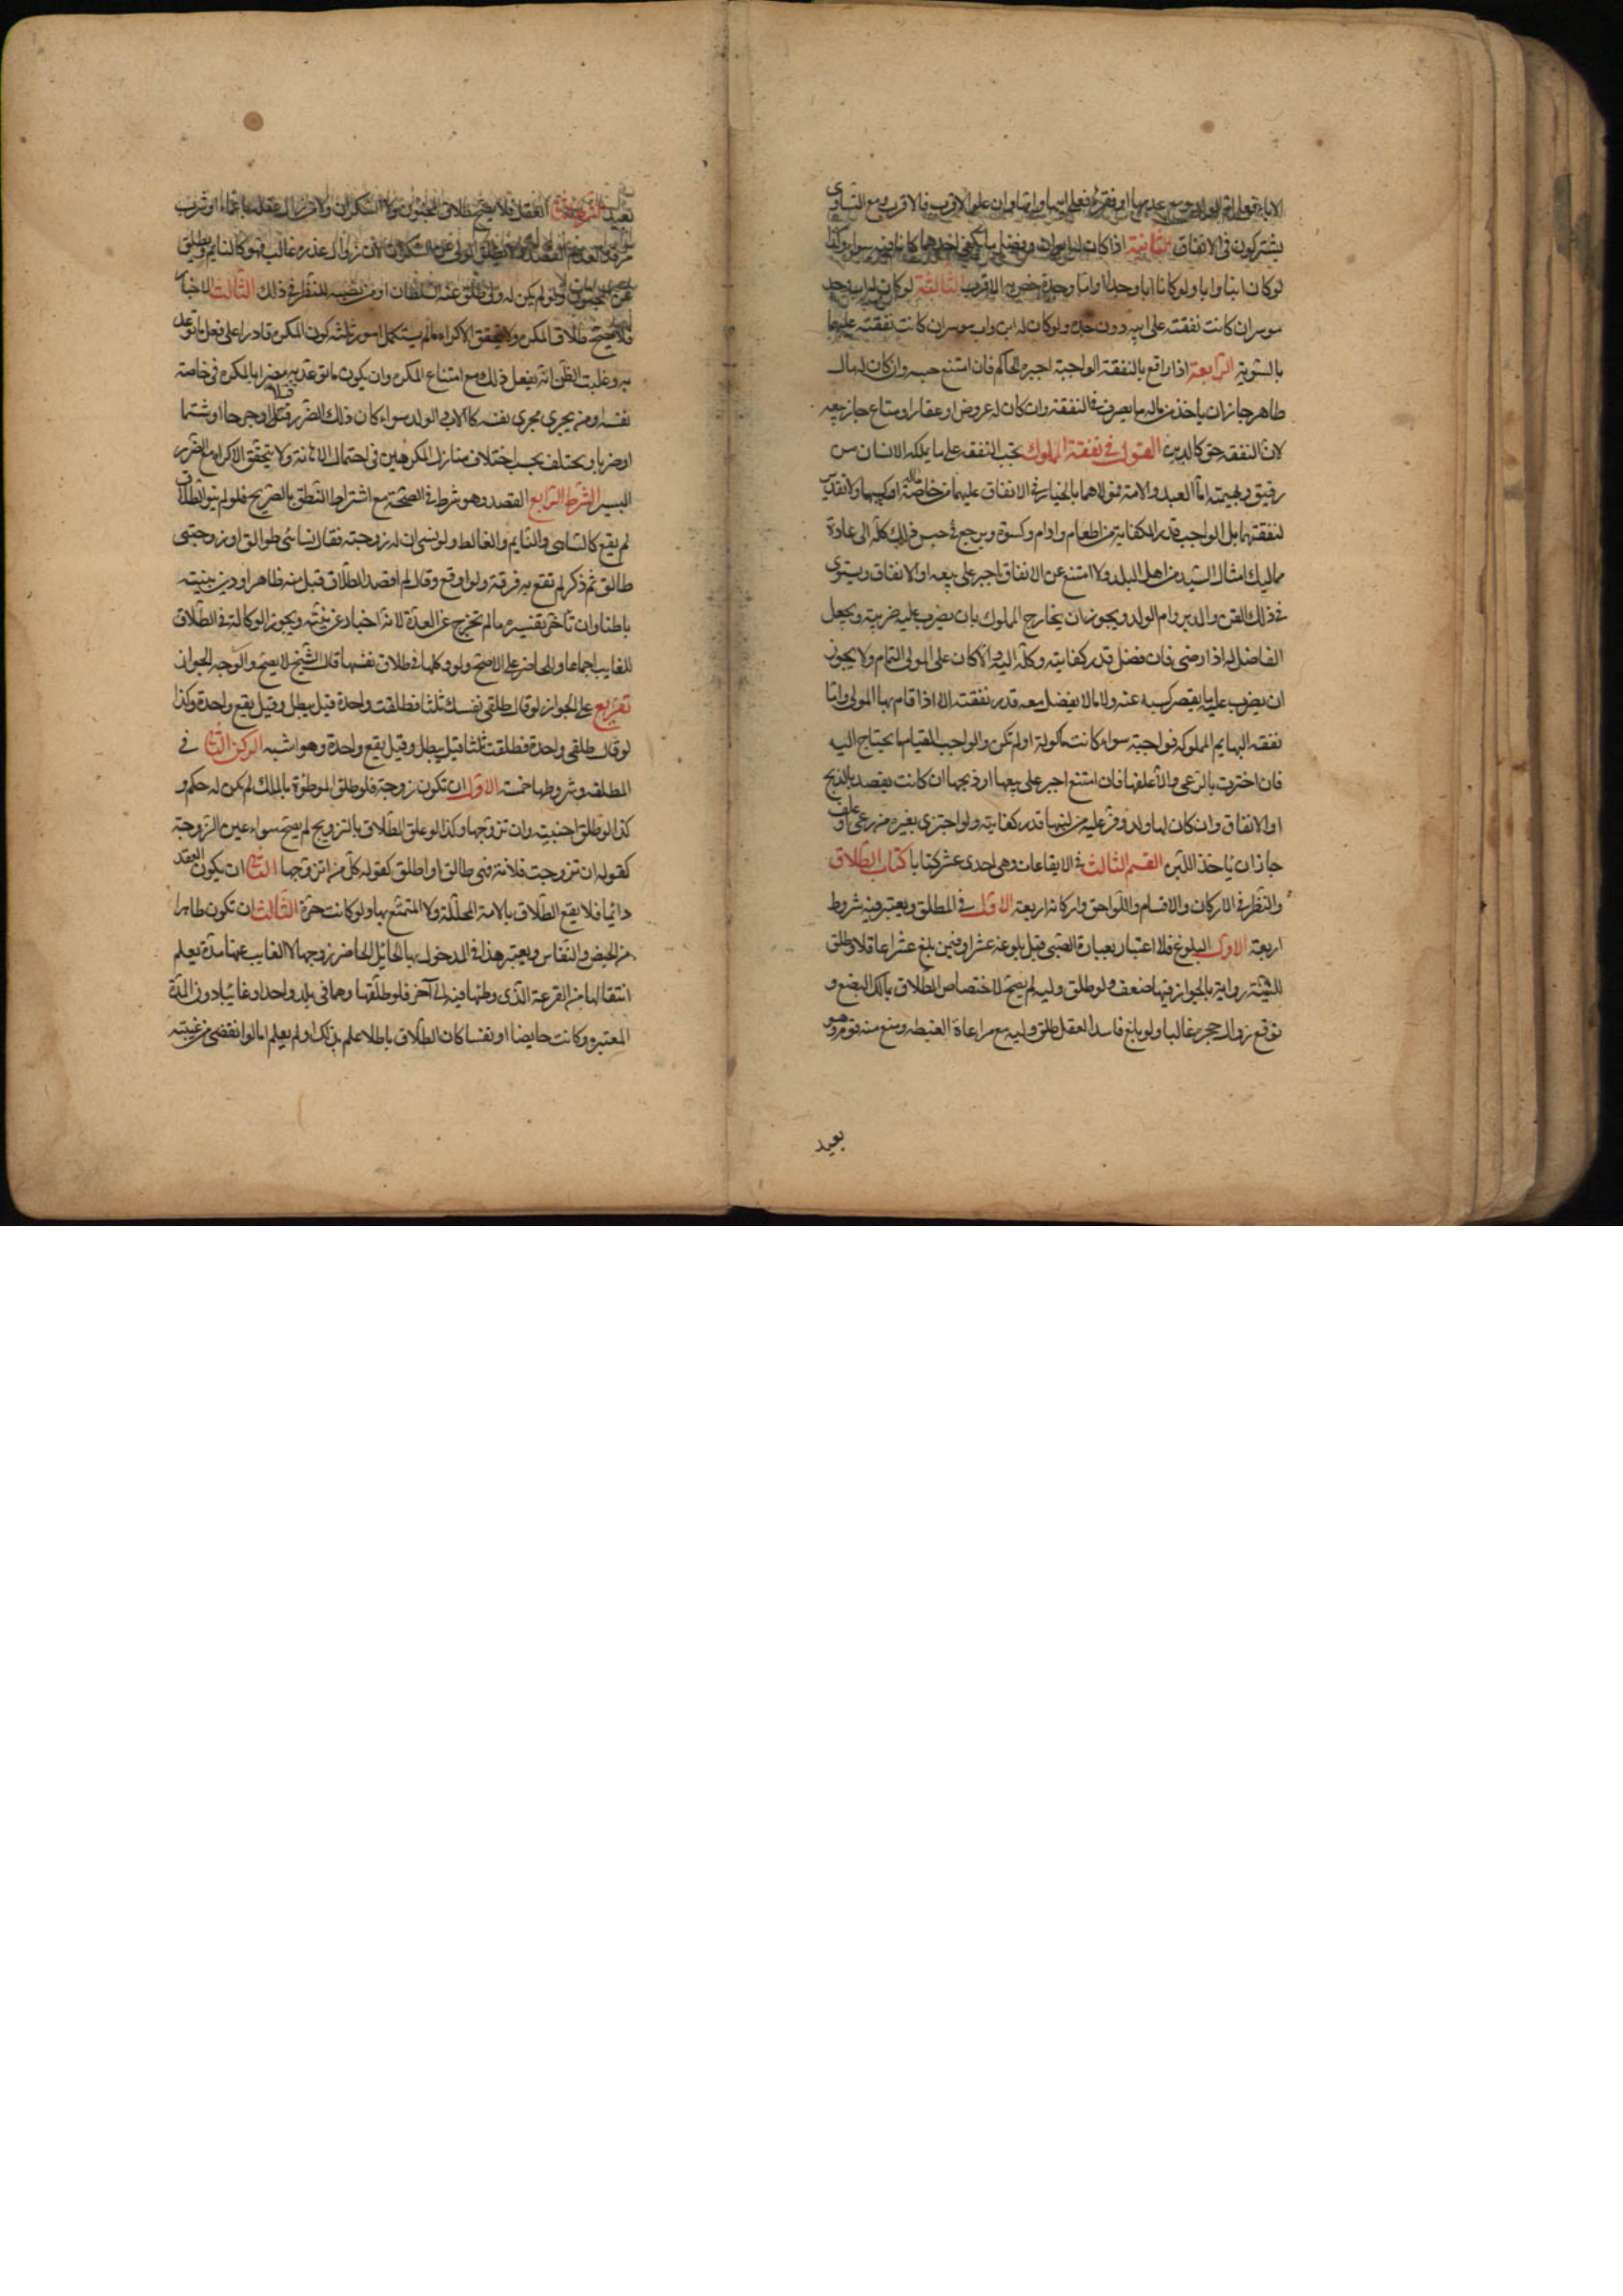 الاباء فعلى ام الولد ومع عدمها او فقرها فعلى ابيها وامها وان علوا الاقرب فالاقرب ومع التساوى
يشتركون فى الانفاق الثانية اذا كان له ابوان وفضل ما يكفى احدهما كانا فيه سواء وكذا
لو كان ابنا وابا ولو كانا ابا وجدا او اما وجدة خص به الاقرب الثالثة لو كان له اب وجد
موسران كانت نفقته على ابيه دون جده ولو كان له ابن واب موسران كانت نفقته عليهما
بالسوية الرابعة اذا دافع بالنفقة الواجبة اجبره الحاكم فان امتنع حبسه وان كان له مال
ظاهر جاز ان ياخذ من ماله ما يصرف فى النفقة وان كان له عروض او عقار او متاع جاز بيعه
لان النفقة حق كالدين القول فى نفقة المملوك تجب النفقة على ما يملكه الانسان من
رقيق وبهيمة اما العبد والامة فمولاهما بالخيار فى الانفاق عليهما من خاصة ماله او كسبهما ولا تقدير
لنفقتهما بل الواجب قدر الكفاية من اطعام وادام وكسوة ويرجع فى جنس ذلك كله الى عادة
مماليك امثال السيد من اهل البلد ولا امتنع عن الانفاق اجبر على بيعه او الانفاق ويستوى
فى ذلك القن والمدبر وام الولد ويجوز ان يخارج المملوك بان يضرب عليه ضريبة ويجعل
الفاضل له اذا رضى فان فضل قدر كفايته وكله اليه والا كان على المولى التمام ولا يجوز
ان يضرب عليه ما يقصر كسبه عنه ولا ما لا يفضل معه قدر نفقته الا اذا قام بها المولى واما
نفقة البهايم المملوكه فواجبة سواء كانت مأكولة او لم تكن والواجب القيام بما يحتاج اليه
فان اجتزت بالرعى والا علفها فان امتنع اجبر على بيعها او ذبحها ان كانت يقصد بالذبح
او الانفاق وان كان لها ولد وفر عليه من لبنها قدر كفايته ولو اجتزى بغيره من رعى او علف
جاز ان ياخذ اللبن القسم الثالث فى الايقاعات وهى احدى عشر كتابا كتاب الطلاق
والنظر فى الاركان والاقسام واللواحق واركانه اربعة الاول فى المطلق ويعتبر فيه شروط
اربعة الاول البلوغ فلا اعتبار بعبارة الصبى قبل بلوغه عشرا وفيمن بلغ عشرا عاقلا وطلق
للسنة رواية بالجواز فيها ضعف ولو طلق وليه لم يصح لاختصاص الطلاق بمالك البضع و
توقع زوال حجره غالبا ولو بلغ فاسد العقل طلق وليه مع مراعاة الغبطه ومنع منه قوم وهو
بعيد
بعيد الشرط الثانى العقل فلا يصح طلاق المجنون ولا السكران ولا من زال عقله باغماء او شرب
مرقد لعدم القصد ولا يطلق الولى عن السكران لان زوال عذره غالب فهو كالنايم ويطلق
عن المجنون ولو لم يكن له ولى طلق عنه السلطان او من نصبه للنظر فى ذلك الثالث الاختيار
فلا يصح طلاق المكره ولا يتحقق الاكراه ما لم يستكمل امور ثلثه كون المكره قادرا على فعل ما توعد
به وغلبت الظن انه يفعل ذلك مع امتناع المكره وان يكون ما توعد به مضرا بالمكره فى خاصة
نفسه او من يجرى مجرى نفسه كالاب والولد سواء كان ذلك الضرر قتلا او جرحا او شتما
او ضربا ويختلف بحسب اختلاف منازل المكرهين فى احتمال الاهانة ولا يتحقق الاكراه مع الضرر
اليسير الشرط الرابع القصد وهو شرط فى الصحة مع اشتراط النطق بالصريح فلو لم ينو الطلاق
لم يقع كالساهى والنايم والغالط ولو نسى ان له زوجته فقال نسائى طوالق او زوجتى
طالق ثم ذكر لم تقع به فرقة ولو اوقع وقال لم اقصد الطلاق قبل منه ظاهرا ودين بنيته
باطنا وان تأخر تفسيره ما لم تخرج عن العدة لانه اخبار عن نيته ويجوز الوكالة فى الطلاق
للغايب اجماعا والحاضر على الاصح ولو وكلها فى طلاق نفسها قال الشيخ لا يصح والوجه الجواز
تفريع على الجواز لو قال طلقى نفسك ثلثا فطلقت واحدة قيل يبطل وقيل يقع واحدة وكذا
لو قال طلقى واحدة فطلقت ثلثا قيل يبطل وقيل يقع واحدة وهو اشبه الركن الثانى فى
المطلقه وشروطها خمسة الاول ان تكون زوجة فلو طلق الموطوة بالملك لم يكن له حكم و
كذا لو طلق اجنبية وان تزوجها وكذا لو علق الطلاق بالتزويج لم يصح سواء عين الزوجة
كقوله ان تزوجت فلانة فهى طالق او اطلق كقوله كل من اتزوجها الثانى ان يكون العقد
دائما فلا يقع الطلاق بالامة المحللة ولا المتمتع بها ولو كانت حرة الثالث ان تكون طاهرا
من الحيض والنفاس ويعتبر هذا فى المدخول بها الحائل الحاضر زوجها لا الغايب عنها مدة يعلم
انتقالها من القرء الذى وطئها فيه الى آخر فلو طلقها وهما فى بلد واحد او غائبا دون المدة
المعتبره وكانت حايضا او نفسا كان الطلاق باطلا علم بذلك او لم يعلم اما لو انقضى من غيبته